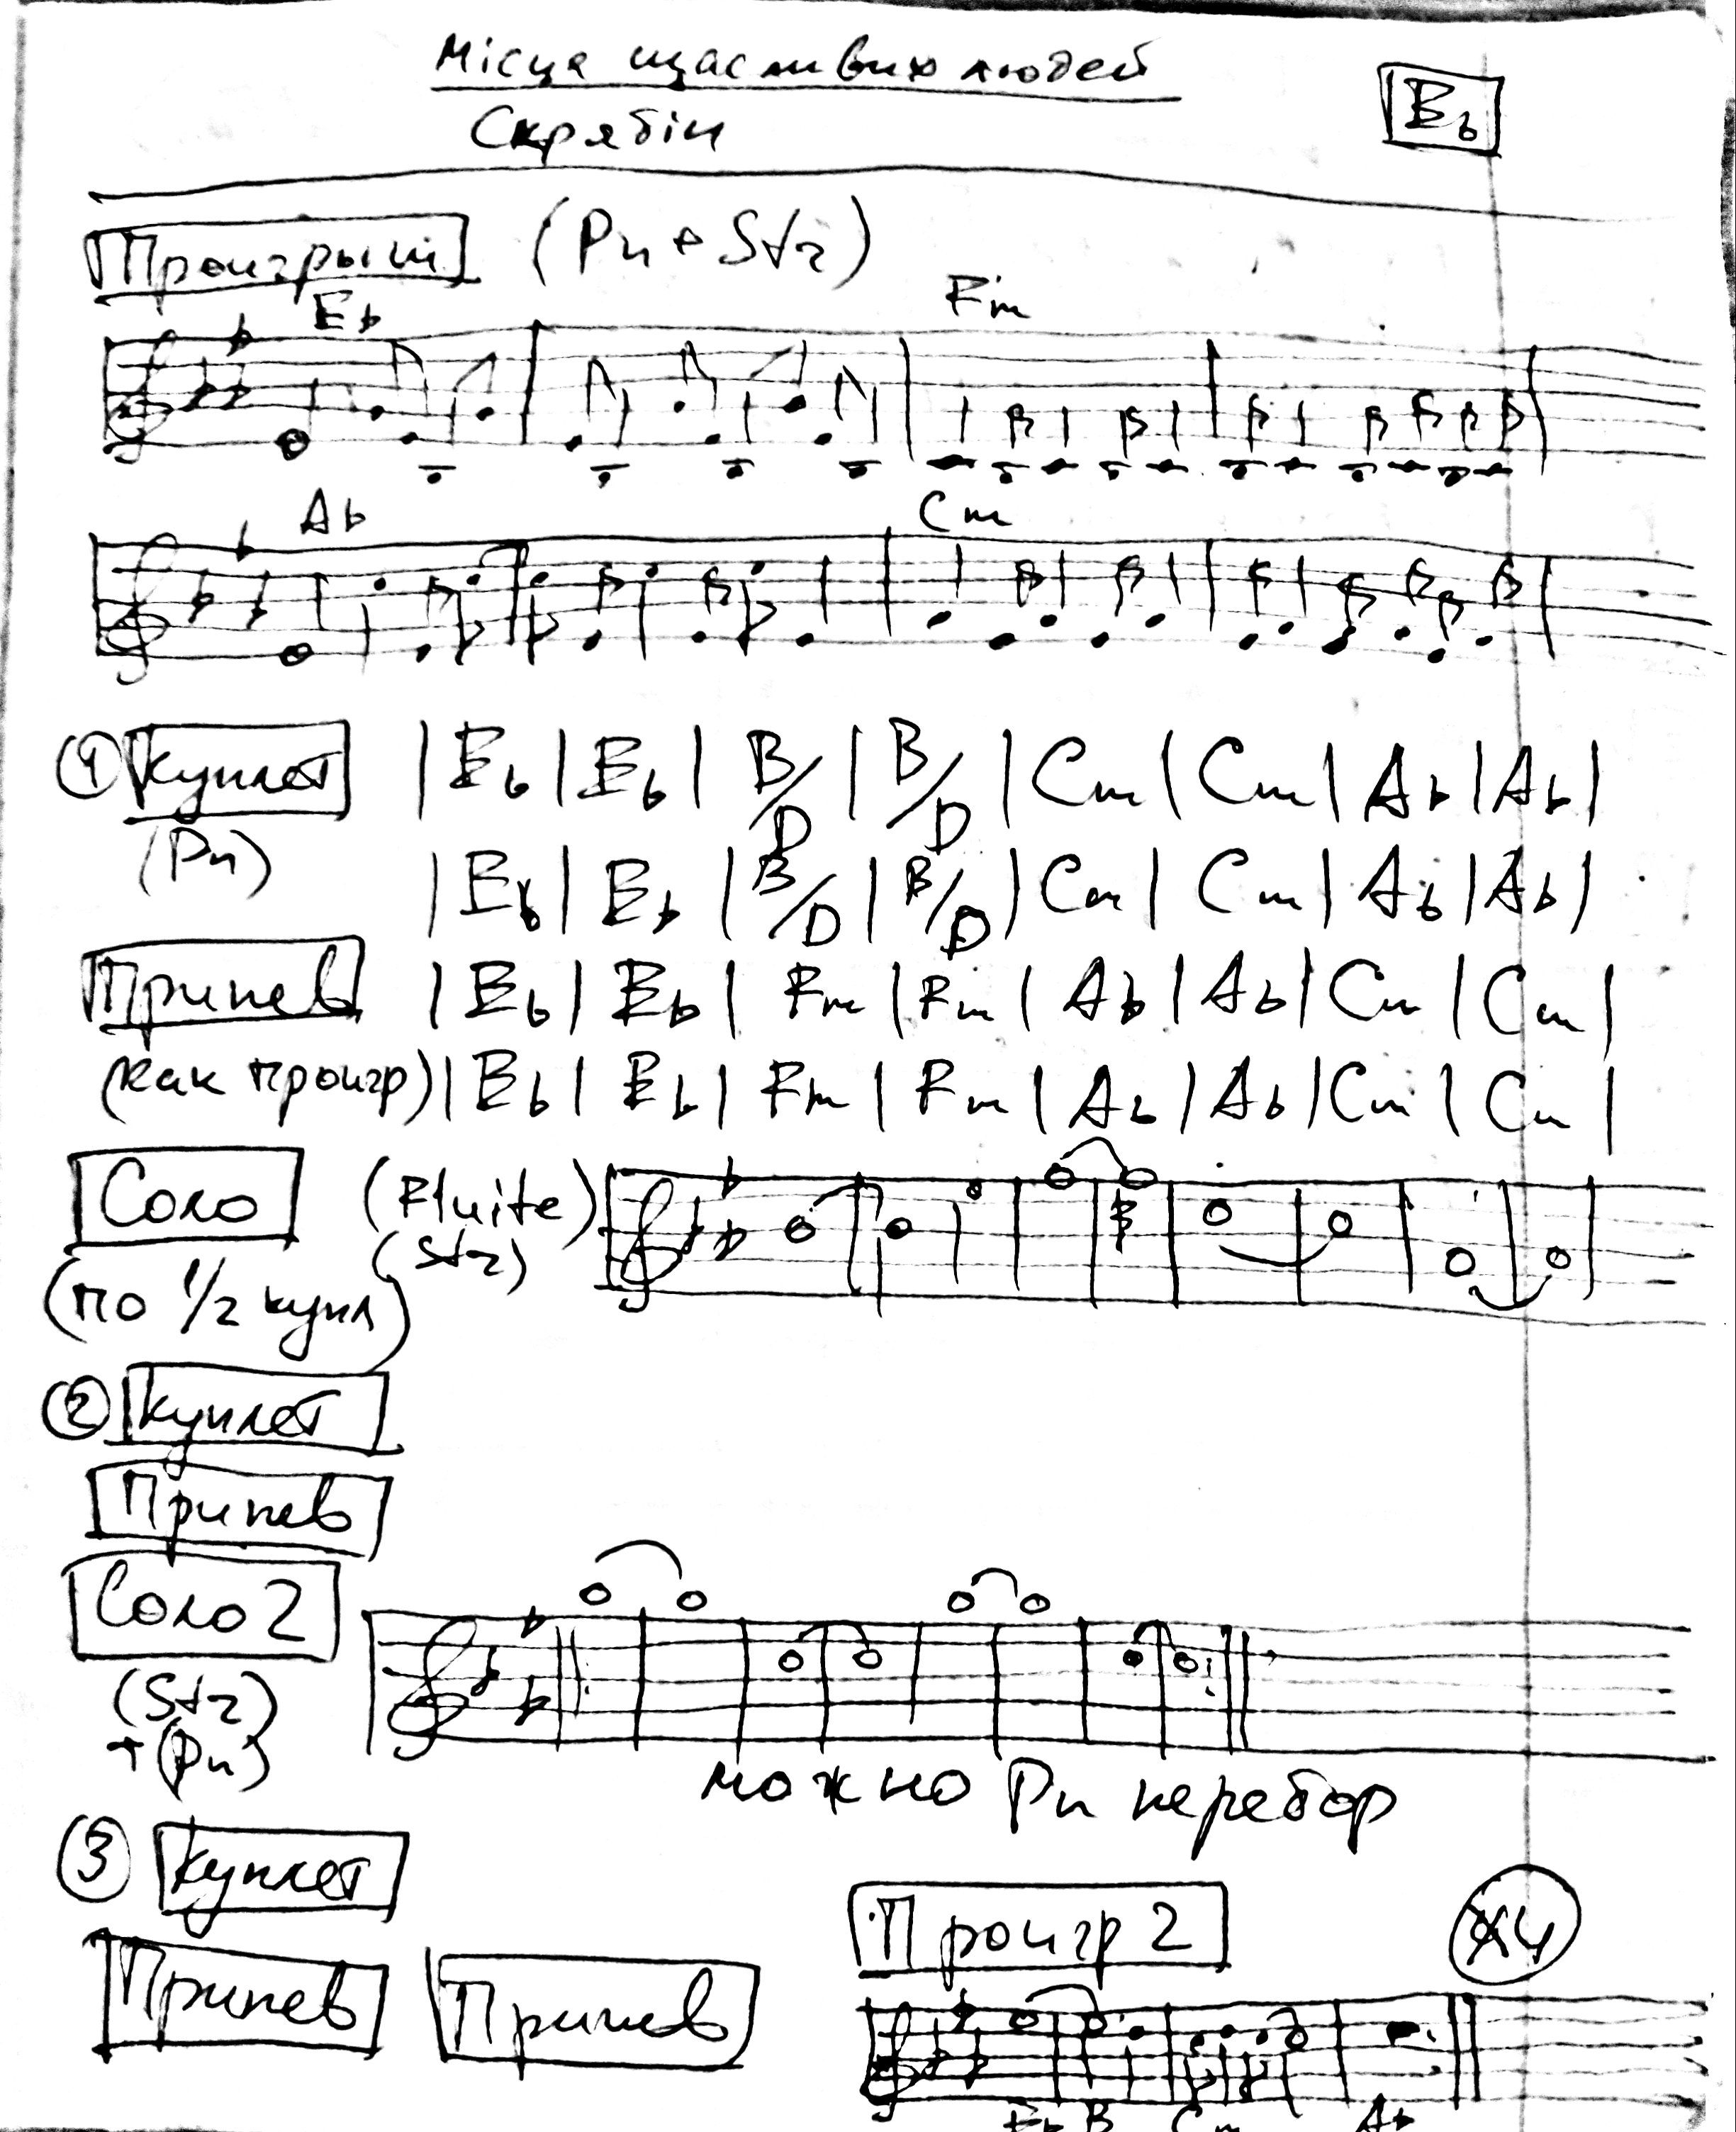 Місця щасливих людей
Скрябін
Eb
Проигрыш (Pn + Str)
Eb Fm
Ab Cm
① Куплет | Eb | Eb | B/D | B/D | Cm | Cm | Ab | Ab |
(Pn) | Eb | Eb | B/D | B/D | Cm | Cm | Ab | Ab |
Припев | Eb | Eb | Fm | Fm | Ab | Ab | Cm | Cm |
(как проигр) | Eb | Eb | Fm | Fm | Ab | Ab | Cm | Cm |
Соло (Fluite)
(Str)
(по 1/2 купл)
② Куплет
Припев
Соло 2
(Str)
+ (Pn)
можно Pn перебор
③ Куплет
Проигр 2 x4
Припев Припев
Eb B Cm Ab